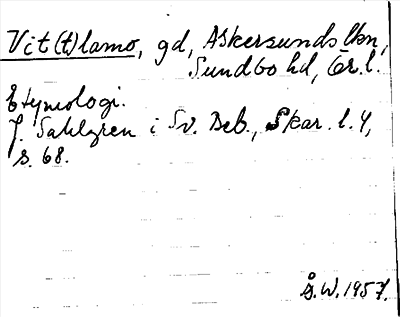 Vit(t)lamo, gd, Askersunds lkn,
Sundbo hd, Ör.l.
Etymologi.
J. Sahlgren i Sv. Deb., Skar. l. 4,
s. 68.
G.W. 1957.